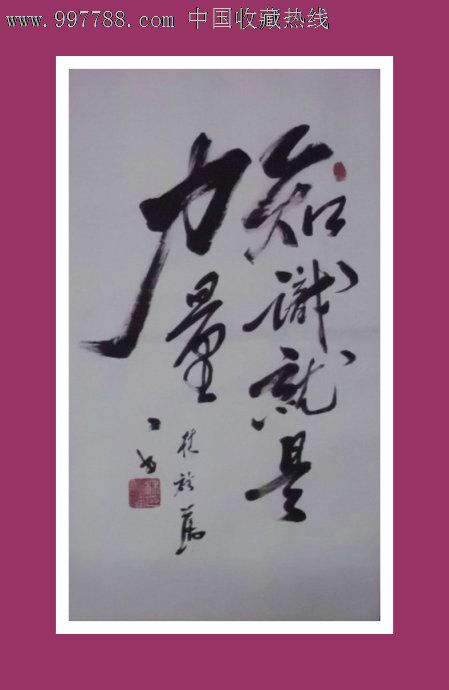 www.997788.com 中国收藏热线
知識就是
力量